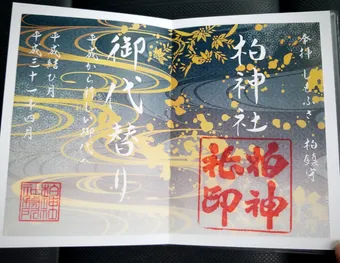 奉拝 しもふさ 柏鎮守
柏神社
柏神
社印
御代替り
平成から新しい御代へ
平成結び月
平成三十一年四月